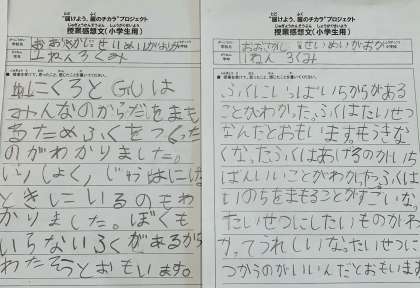 "届けよう、服のチカラ"プロジェクト
授業感想文(小学生用)
1ねん ろくみ
にくろと GUは
みんなのからだをまも
るためふくをつくった
のがわかりました。
ときにいるのもわ
かりました。ぼくも
いらないふくがあるから
わたそうとおもいます。
"届けよう、服のチカラ"プロジェクト
授業感想文(小学生用)
1ねん ろくみ
ふくにいっぱいちからがある
ことがわかった。ふくはたいせつ
なんだとおもいます。もうきな
くなったふくはあげるのがいち
ばんいいことがわかった。ふくは
いのちをまもることがすごいな。
たいせつにしたいものがわ
かってうれしいな。たいせつに
つかうのがいいんだとおもいま